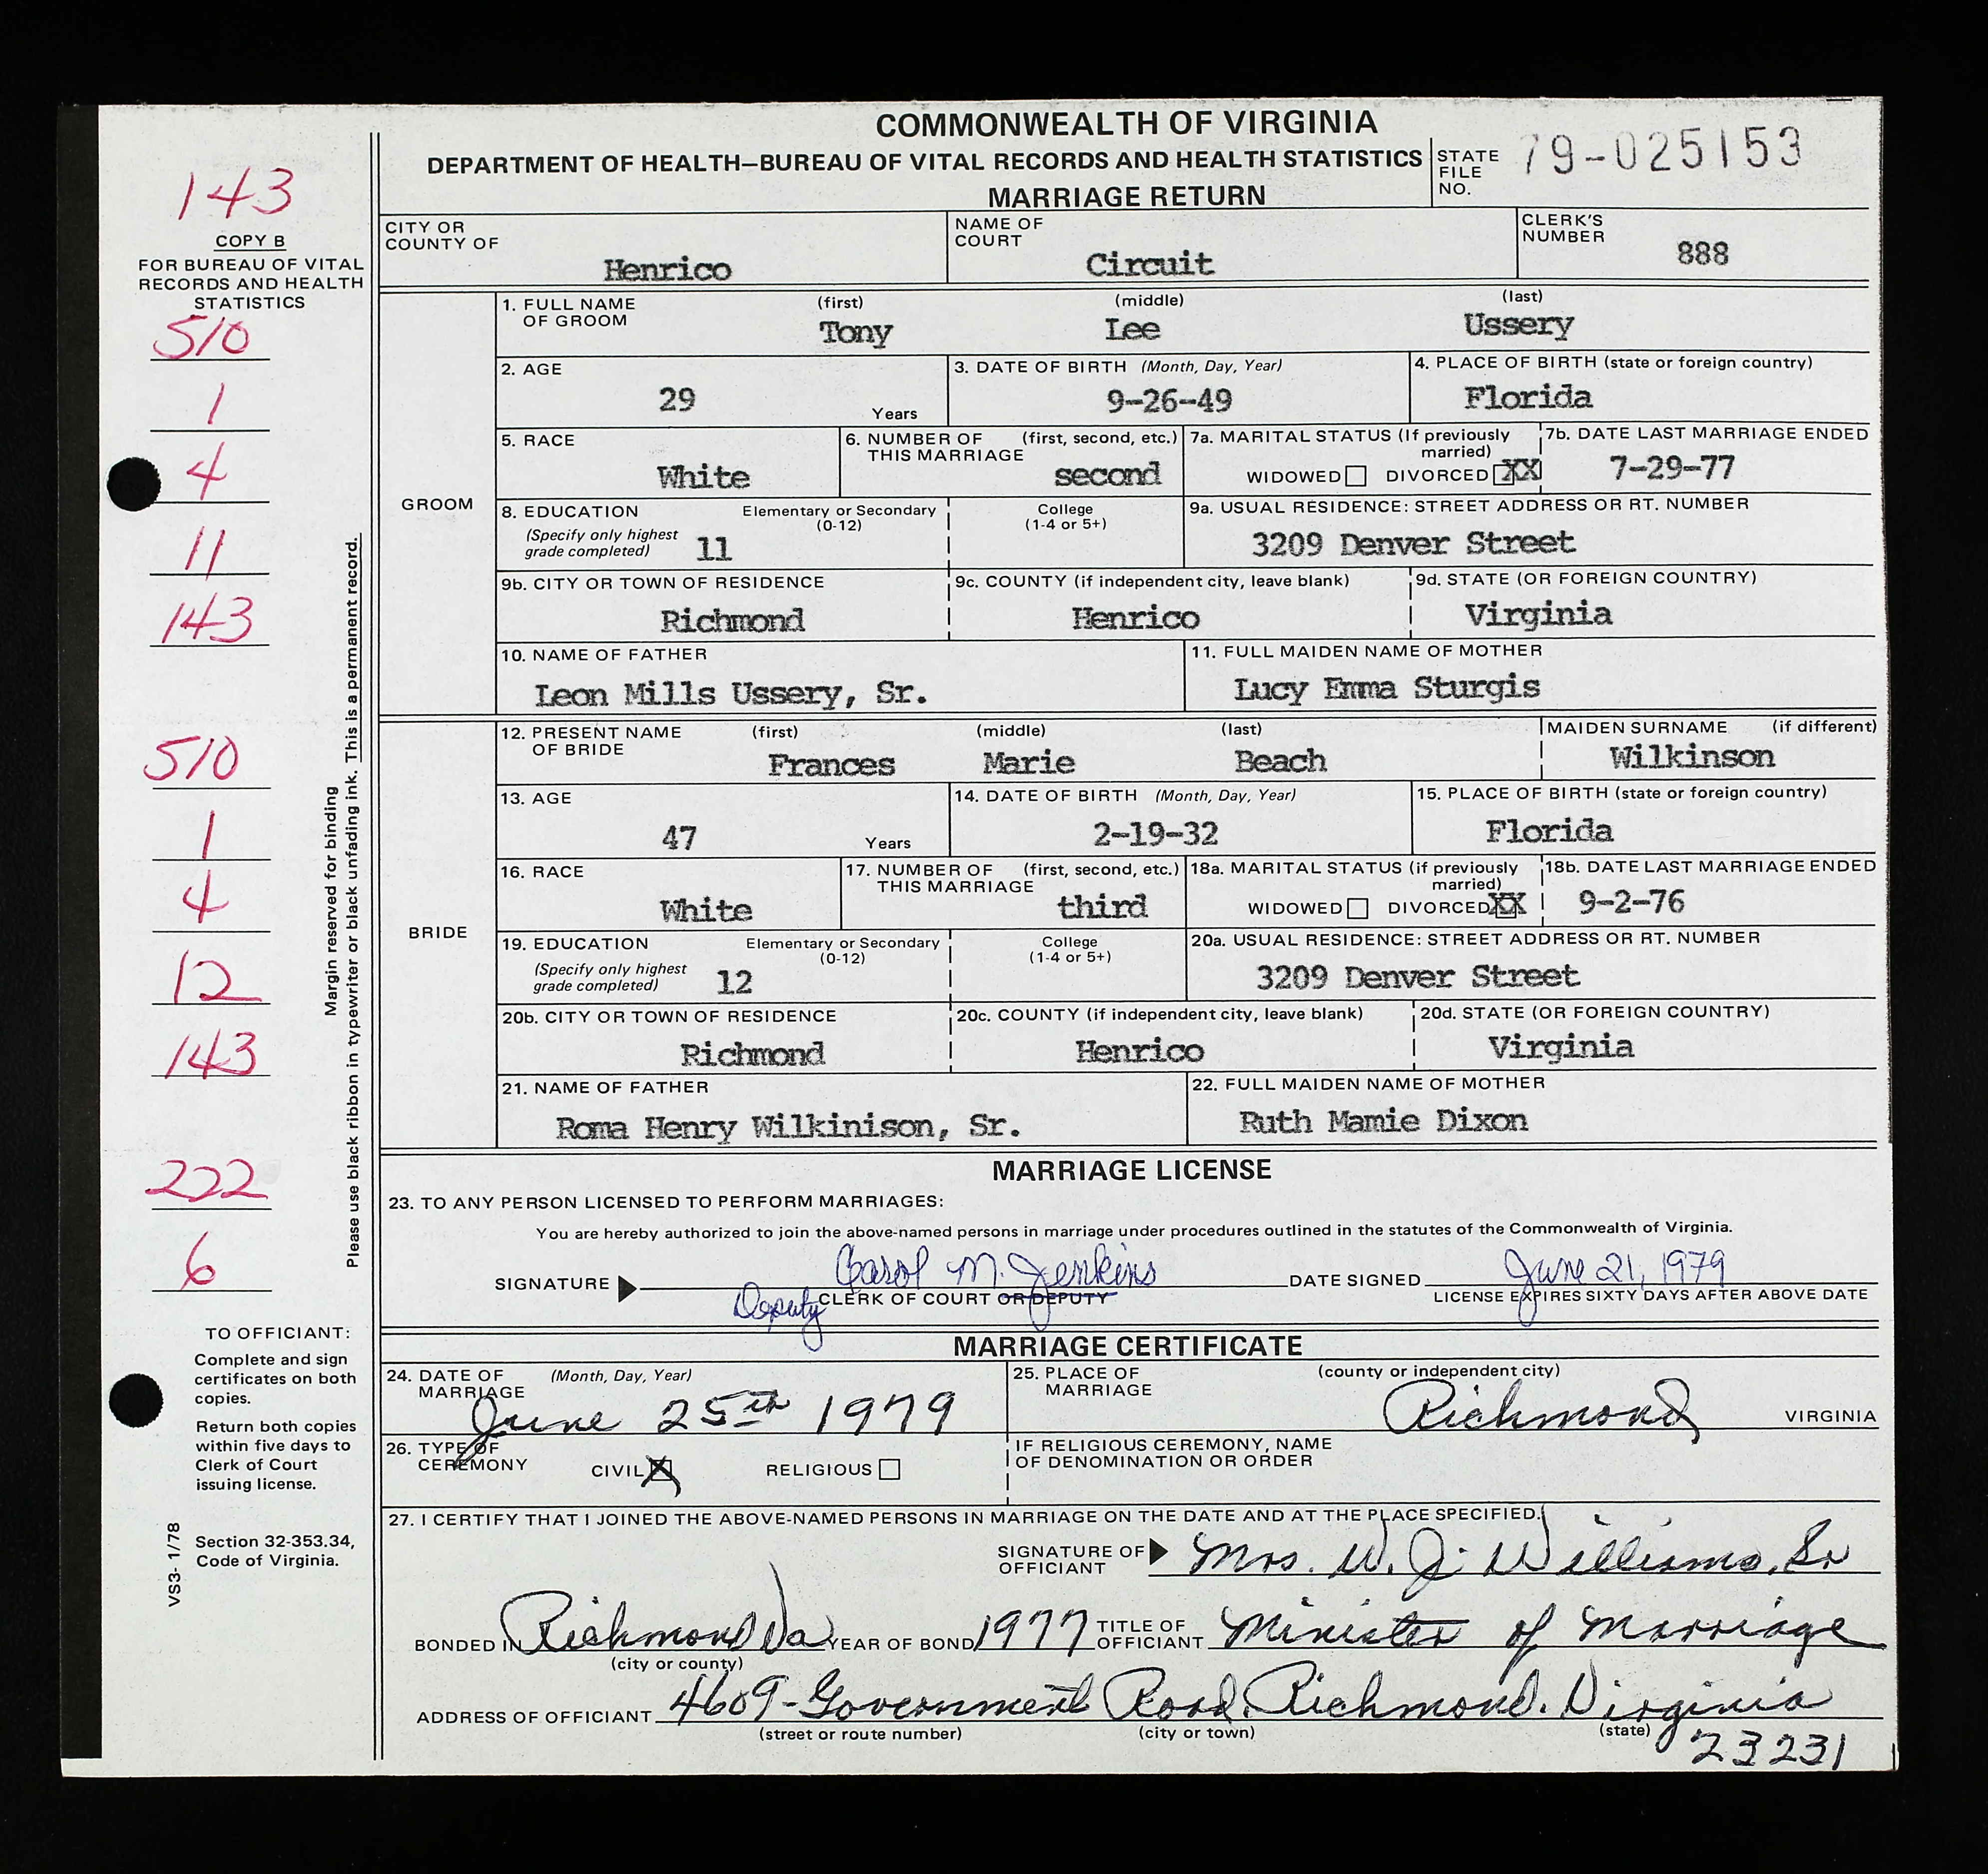 COMMONWEALTH OF VIRGINIA
DEPARTMENT OF HEALTH—BUREAU OF VITAL RECORDS AND HEALTH STATISTICS
MARRIAGE RETURN
STATE FILE NO. 79-025153
143
COPY B
FOR BUREAU OF VITAL
RECORDS AND HEALTH
STATISTICS
510
1
4
11
143
510
1
4
12
143
222
6
Margin reserved for binding
Please use black ribbon in typewriter or black unfading ink. This is a permanent record.
TO OFFICIANT:
Complete and sign
certificates on both
copies.
Return both copies
within five days to
Clerk of Court
issuing license.
Section 32-353.34,
Code of Virginia.
VS3- 1/78
CITY OR COUNTY OF Henrico
NAME OF COURT Circuit
CLERK'S NUMBER 888
GROOM
1. FULL NAME OF GROOM (first) Tony (middle) Lee (last) Ussery
2. AGE 29 Years
3. DATE OF BIRTH (Month, Day, Year) 9-26-49
4. PLACE OF BIRTH (state or foreign country) Florida
5. RACE White
6. NUMBER OF THIS MARRIAGE (first, second, etc.) second
7a. MARITAL STATUS (If previously married) WIDOWED DIVORCED XX
7b. DATE LAST MARRIAGE ENDED 7-29-77
8. EDUCATION (Specify only highest grade completed) Elementary or Secondary (0-12) 11 College (1-4 or 5+)
9a. USUAL RESIDENCE: STREET ADDRESS OR RT. NUMBER 3209 Denver Street
9b. CITY OR TOWN OF RESIDENCE Richmond
9c. COUNTY (if independent city, leave blank) Henrico
9d. STATE (OR FOREIGN COUNTRY) Virginia
10. NAME OF FATHER Leon Mills Ussery, Sr.
11. FULL MAIDEN NAME OF MOTHER Lucy Emma Sturgis
BRIDE
12. PRESENT NAME OF BRIDE (first) Frances (middle) Marie (last) Beach
MAIDEN SURNAME (if different) Wilkinson
13. AGE 47 Years
14. DATE OF BIRTH (Month, Day, Year) 2-19-32
15. PLACE OF BIRTH (state or foreign country) Florida
16. RACE White
17. NUMBER OF THIS MARRIAGE (first, second, etc.) third
18a. MARITAL STATUS (if previously married) WIDOWED DIVORCED XX
18b. DATE LAST MARRIAGE ENDED 9-2-76
19. EDUCATION (Specify only highest grade completed) Elementary or Secondary (0-12) 12 College (1-4 or 5+)
20a. USUAL RESIDENCE: STREET ADDRESS OR RT. NUMBER 3209 Denver Street
20b. CITY OR TOWN OF RESIDENCE Richmond
20c. COUNTY (if independent city, leave blank) Henrico
20d. STATE (OR FOREIGN COUNTRY) Virginia
21. NAME OF FATHER Roma Henry Wilkinison, Sr.
22. FULL MAIDEN NAME OF MOTHER Ruth Mamie Dixon
MARRIAGE LICENSE
23. TO ANY PERSON LICENSED TO PERFORM MARRIAGES:
You are hereby authorized to join the above-named persons in marriage under procedures outlined in the statutes of the Commonwealth of Virginia.
SIGNATURE Carol M. Jenkins DATE SIGNED June 21, 1979
Deputy CLERK OF COURT OR DEPUTY
LICENSE EXPIRES SIXTY DAYS AFTER ABOVE DATE
MARRIAGE CERTIFICATE
24. DATE OF MARRIAGE (Month, Day, Year) June 25th 1979
25. PLACE OF MARRIAGE (county or independent city) Richmond VIRGINIA
26. TYPE OF CEREMONY CIVIL X RELIGIOUS
IF RELIGIOUS CEREMONY, NAME OF DENOMINATION OR ORDER
27. I CERTIFY THAT I JOINED THE ABOVE-NAMED PERSONS IN MARRIAGE ON THE DATE AND AT THE PLACE SPECIFIED.
SIGNATURE OF OFFICIANT Mrs. W. J. Williams, Sr
BONDED IN Richmond Va YEAR OF BOND 1977 TITLE OF OFFICIANT Minister of Marriage
(city or county)
ADDRESS OF OFFICIANT 4609-Government Road. Richmond. Virginia
(street or route number) (city or town) (state)
23231